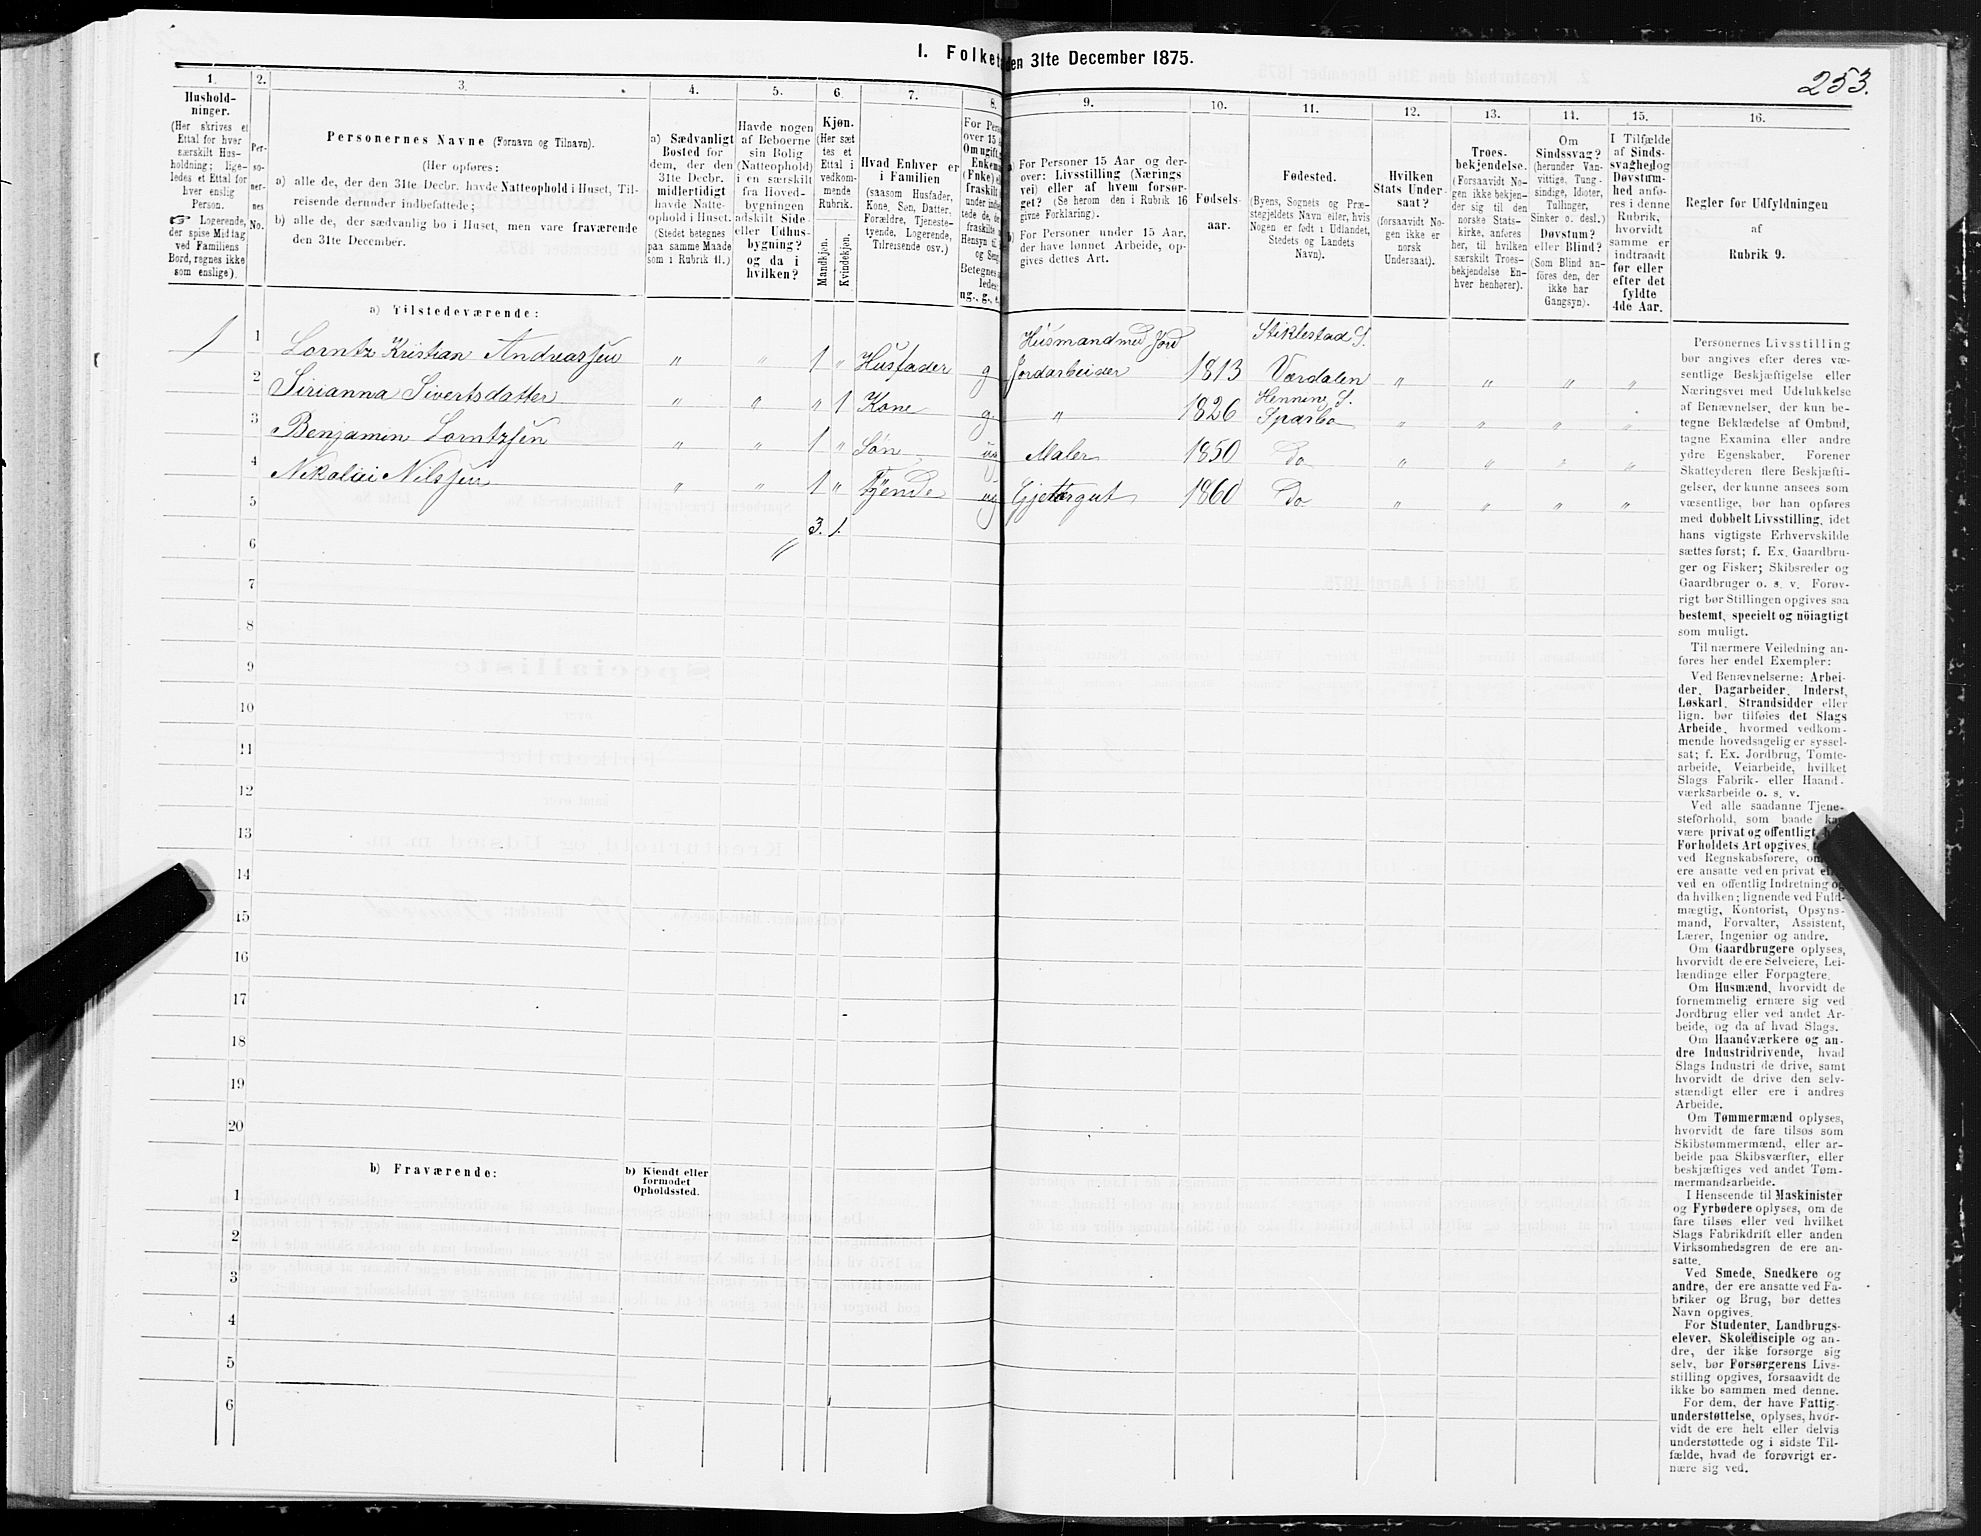 I. Folket den 31te December 1875.
253.
1.
Hushold-
ninger.
(Her skrives et
Ettal for hver
særskilt Hus-
holdning; lige-
ledes et Ettal for
hver enslig
Person.
☞ Logerende,
der spise Middag
ved Familiens
Bord, regnes ikke
som enslige).
2.
Per-
so-
ner-
nes
No.
3.
Personernes Navne (Fornavn og Tilnavn).
(Her opføres:
a) alle de, der den 31te Decbr. havde Natteophold i Huset, Til-
reisende derunder indbefattede;
b) alle de, der sædvanlig bo i Huset, men vare fraværende
den 31te December.
4.
a) Sædvanligt
Bosted for
dem, der den
31te Decbr.
midlertidigt
havde Natte-
ophold i Huset.
(Stedet betegnes
paa samme Maade
som i Rubrik 11.)
5.
Havde nogen
af Beboerne
sin Bolig
(Natteophold)
i en særskilt
fra Hoved-
bygningen
adskilt Side-
eller Udhus-
bygning?
og da i
hvilken?
6.
Kjøn.
(Her sæt-
tes et
Ettal i
vedkom-
mende
Rubrik.
Mandkjøn.
Kvindekjøn.
7.
Hvad Enhver er
i Familien
(saasom Husfader,
Kone, Søn, Datter,
Forældre, Tjeneste-
tyende, Logerende,
Tilreisende osv.)
8.
For Perso
over 15 a
Om ugift,
Enkema
(Enke) el
fraskilt
9.
a) For Personer 15 Aar og der-
over: Livsstilling (Nærings-
vei) eller af hvem forsør-
get? (Se herom den i Rubrik 16
givne Forklaring).
b) For Personer under 15 Aar,
der have lønnet Arbeide, op-
gives dettes Art.
10.
Fødsels-
aar.
11.
Fødested.
(Byens, Sognets og Præ-
stegjeldets Navn eller, hvis
Nogen er født i Udlandet,
Stedets og Landets
Navn).
12.
Hvilken
Stats Under-
saat?
(forsaavidt No-
gen ikke er
norsk
Undersaat).
13.
Troes-
bekjendelse.
(Forsaavidt No-
gen ikke bekjen-
der sig til den
norske Stats-
kirke, anføres
her, til hvilken
særskilt Troes-
bekjendelse En-
hver henhører).
14.
Om
Sindssvag?
(herunder Van-
vittige, Tung-
sindige, Idioter,
Tullinger,
Sinker o. desl.)
Døvstum?
eller Blind?
(Som Blind an-
føres den, der
ikke har
Gangsyn).
15.
I Tilfælde
af Sinds-
svaghed og
Døvstum-
hed anfø-
res i denne
Rubrik,
hvorvidt
samme er
indtraadt
før eller
efter det
fyldte
4de Aar.
16.
Regler for Udfyldningen
af
Rubrik 9.
a) Tilstedeværende:
1 1 Lorntz Kristian Andreassen " " 1 " Husfader g Husmand med Jord
Jordarbeider 1813 Stiklestad S.
Værdalen " " " "
2 Sirianna Sivertsdatter " " " 1 Kone g " 1826 Henning S.
Sparbo " " " "
3 Benjamin Lorntzsen " " 1 " Søn ug Maler 1850 Do " " " "
4 Nikolai Nilssen " " 1 " Tjende ug Gjetergut 1860 Do " " " "
5
3. 1.
6
7
8
9
10
11
12
13
14
15
16
17
18
19
20
b) Fraværende:
b) Kjendt eller
formodet
Opholdssted.
1
2
3
4
5
6
Personernes Livsstilling
bør angives efter deres væ-
sentlige Beskjæftigelse eller
Næringsvei med Udelukkelse
af Benævnelser, der kun be-
tegne Beklædelse af Ombud,
tagne Examina eller andre
ydre Egenskaber. Forener
Skatteyderen flere Beskjæfti-
gelser, der kunne ansees som
væsentlige, bør han opføres
med dobbelt Livsstilling, idet
hans vigtigste Erhvervskilde
sættes først; f. Ex. Gaardbru-
ger og Fisker; Skibsreder og
Gaardbruger o. s. v. Forøv-
rigt bør Stillingen opgives saa
bestemt, specielt og nöiagtigt
som muligt.
Til nærmere Veiledning an-
føres her endel Exempler:
Ved Benævnelserne: Arbei-
der, Dagarbeider, Inderst,
Løskarl, Strandsidder eller
lign. bør tilføies det Slags
Arbeide, hvormed vedkom-
mende hovedsagelig er syssel-
sat; f. Ex. Jordbrug, Tomte-
arbeide, Veiarbeide, hvilket
Slags Fabrik- eller Haand-
værksarbeide o. s. v.
Ved alle saadanne Tjene-
steforhold, som baade ka
være privat og offentligt,
Forholdets Art opgives,
ved Regnskabsførere, om
ere ansatte ved en privat el
ved en offentlig Indretning og
da hvilken; lignende ved Fuld-
mægtig, Kontorist, Opsyns-
mand, Forvalter, Assistent,
Lærer, Ingeniør og andre.
Om Gaardbrugere oplyses,
hvorvidt de ere Selveiere, Lei-
lændinge eller Forpagtere.
Om Husmænd, hvorvidt de
fornemmelig ernære sig ved
Jordbrug eller ved andet Ar-
beide, og da af hvad Slags.
Om Haandværkere og an-
dre Industridrivende, hvad
Slags Industri de drive, samt
hvorvidt de drive den selv-
stændigt eller ere i andres
Arbeide.
Om Tømmermænd oplyses,
hvorvidt de fare tilsøs som
Skibstømmermænd, eller ar-
beide paa Skibsværfter, eller
beskjæftiges ved andet Tøm-
mermandsarbeide.
I Henseende til Maskinister
og Fyrbødere oplyses, om de
fare tilsøs eller ved hvilket
Slags Fabrikdrift eller anden
Virksomhedsgren de ere an-
satte.
Ved Smede, Snedkere og
andre, der ere ansatte ved Fa-
briker og Brug, bør dettes
Navn opgives.
For Studenter, Landbrugs-
elever, Skoledisciple og an-
dre, der ikke forsørge sig
selv, bør Forsørgerens Livs-
stilling opgives, forsaavidt de
ikke bo sammen med denne.
For dem, der have Fattig-
understøttelse, oplyses, hvor-
vidt de ere helt eller delvis
understøttede og i sidste Til-
fælde, hvad de forøvrigt er-
nære sig ved.